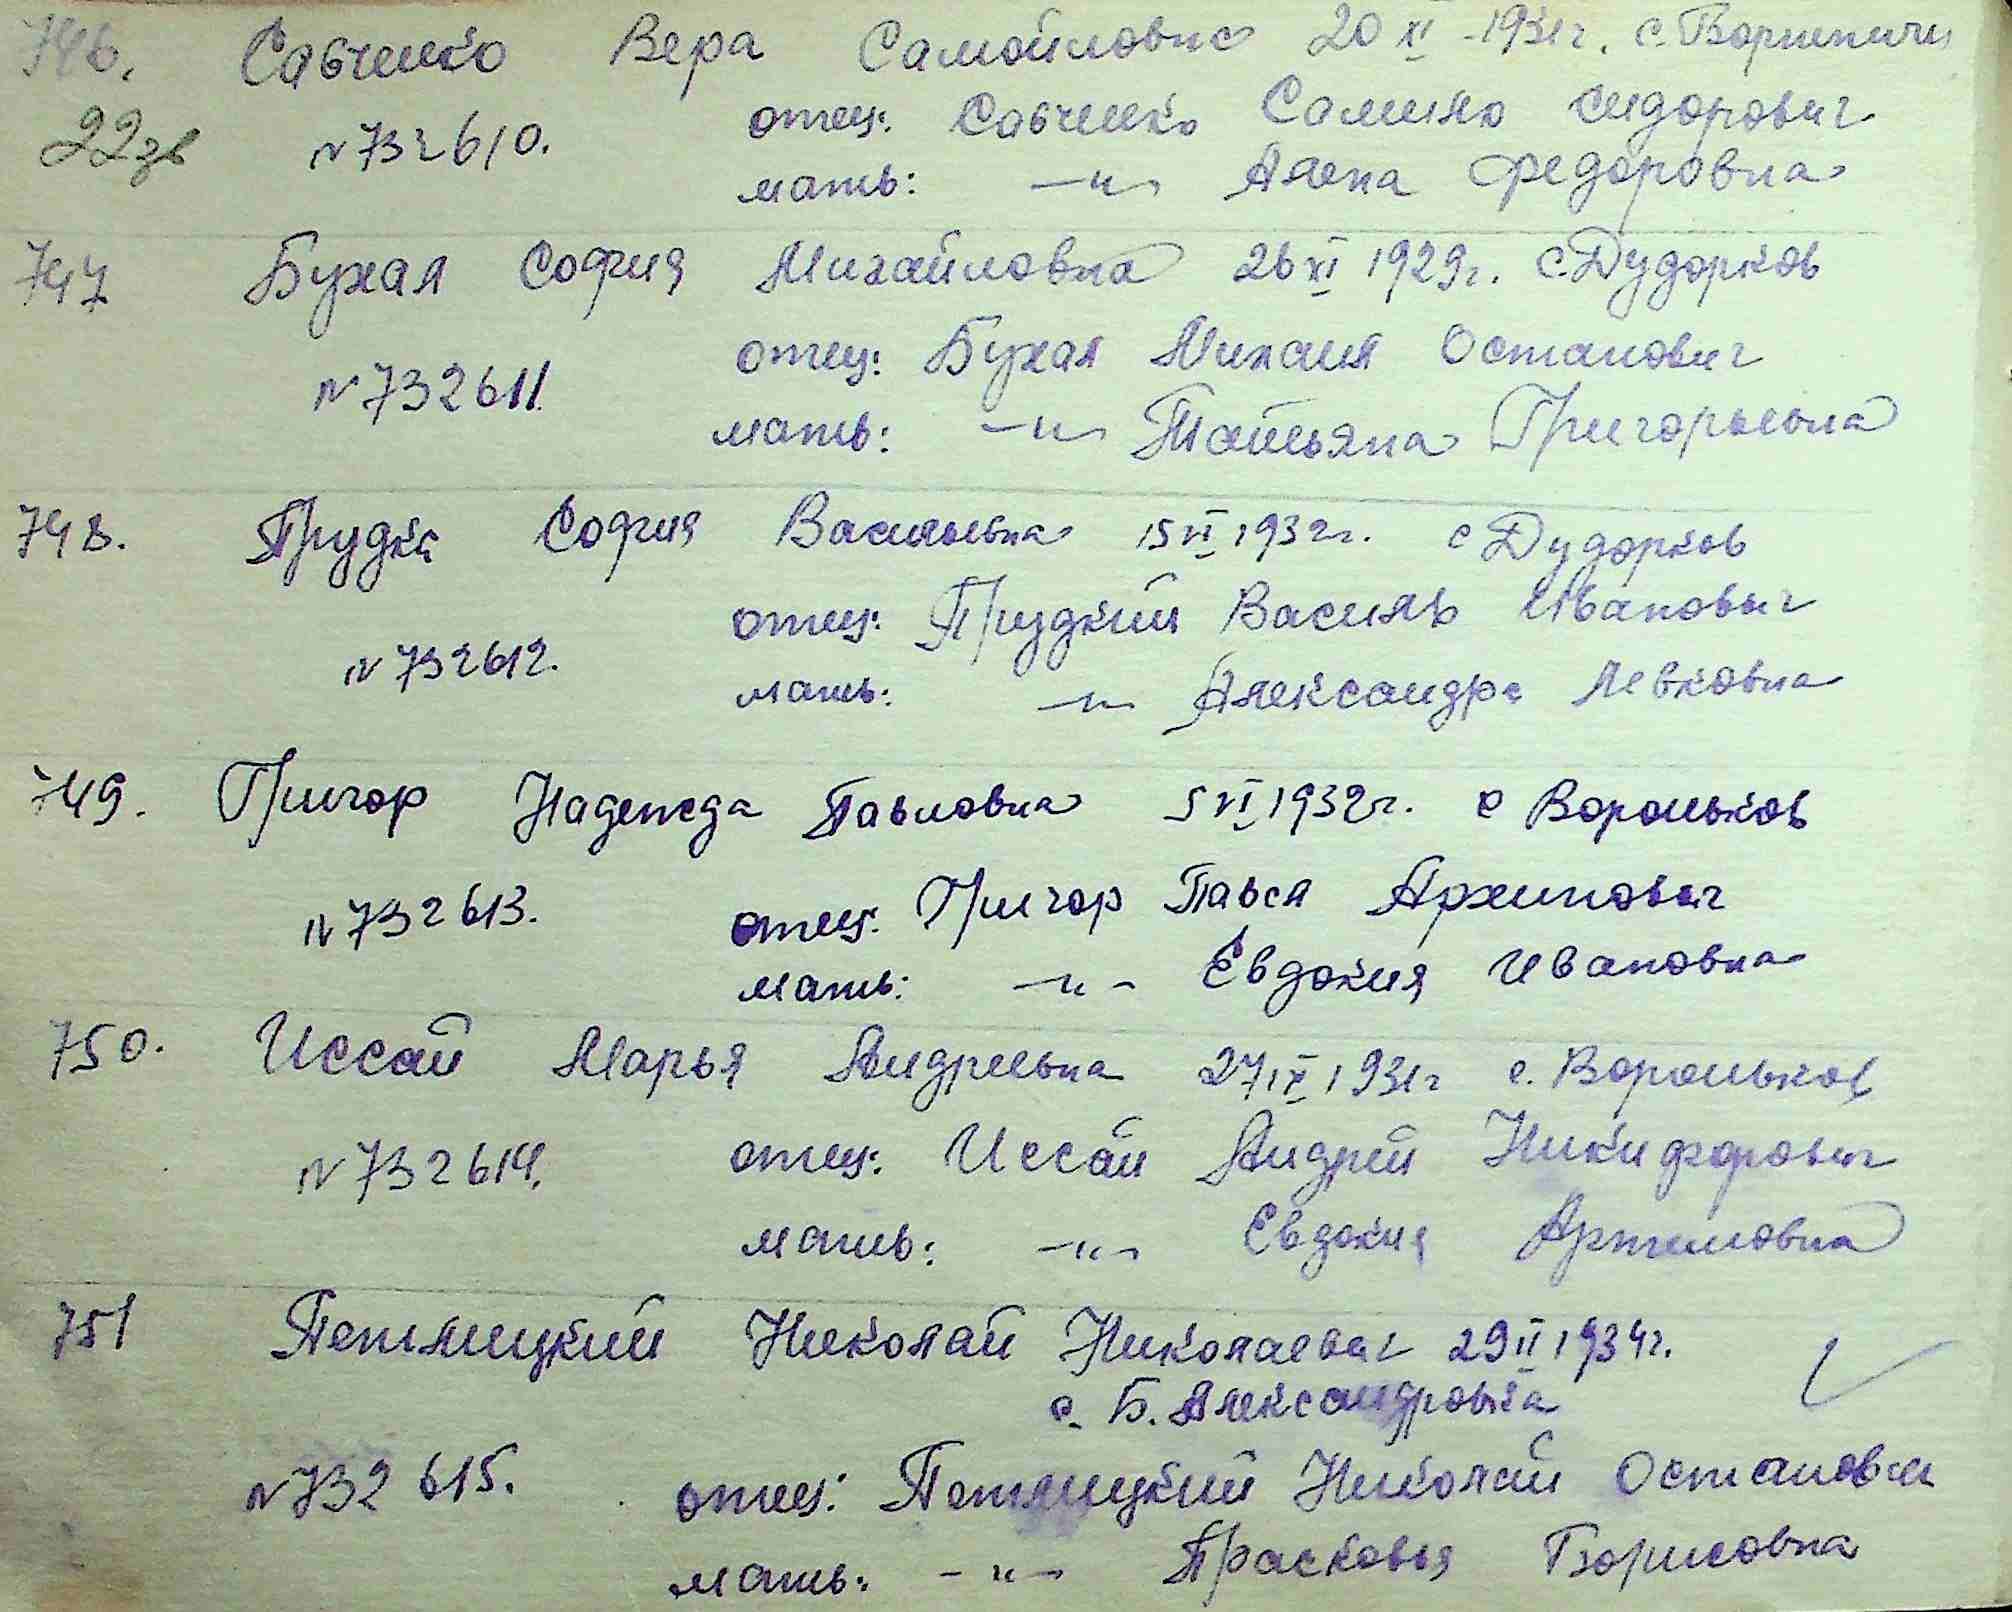 746. Савченко Вера Самойловна 20 XI 1931г. с.
22 зв №732610. отец: Савченко Самийло Сидорович
мать: —"— Алена Федоровна
747 Бухал София Михайловна 26 XI 1929г. с Дударков
отец: Бухал Михаил Остапович
№732611.
мать: —"— Татьяна Григорьевна
748. Прудка София Васильевна 15 VI 1932г. с Дударков
отец: Прудкий Василь Иванович
№732612.
мать: —"— Александра Левковна
749. Григор Надежда Павловна 5 VI 1932г. с Вороньков
№732613. отец: Григор Павел Архипович
мать: —"— Евдокия Ивановна
750. Иссай Марья Андреевна 27 IX 1931г с. Вороньков
№732614. отец: Иссай Андрей Никифорович
мать: —"— Евдокия Артемовна
751 Петлицкий Николай Николаевич 29 II 1934г.
с. Б. Александровка
№732615. отец: Петлицкий Николай Остапович
мать: —"— Прасковья Борисовна